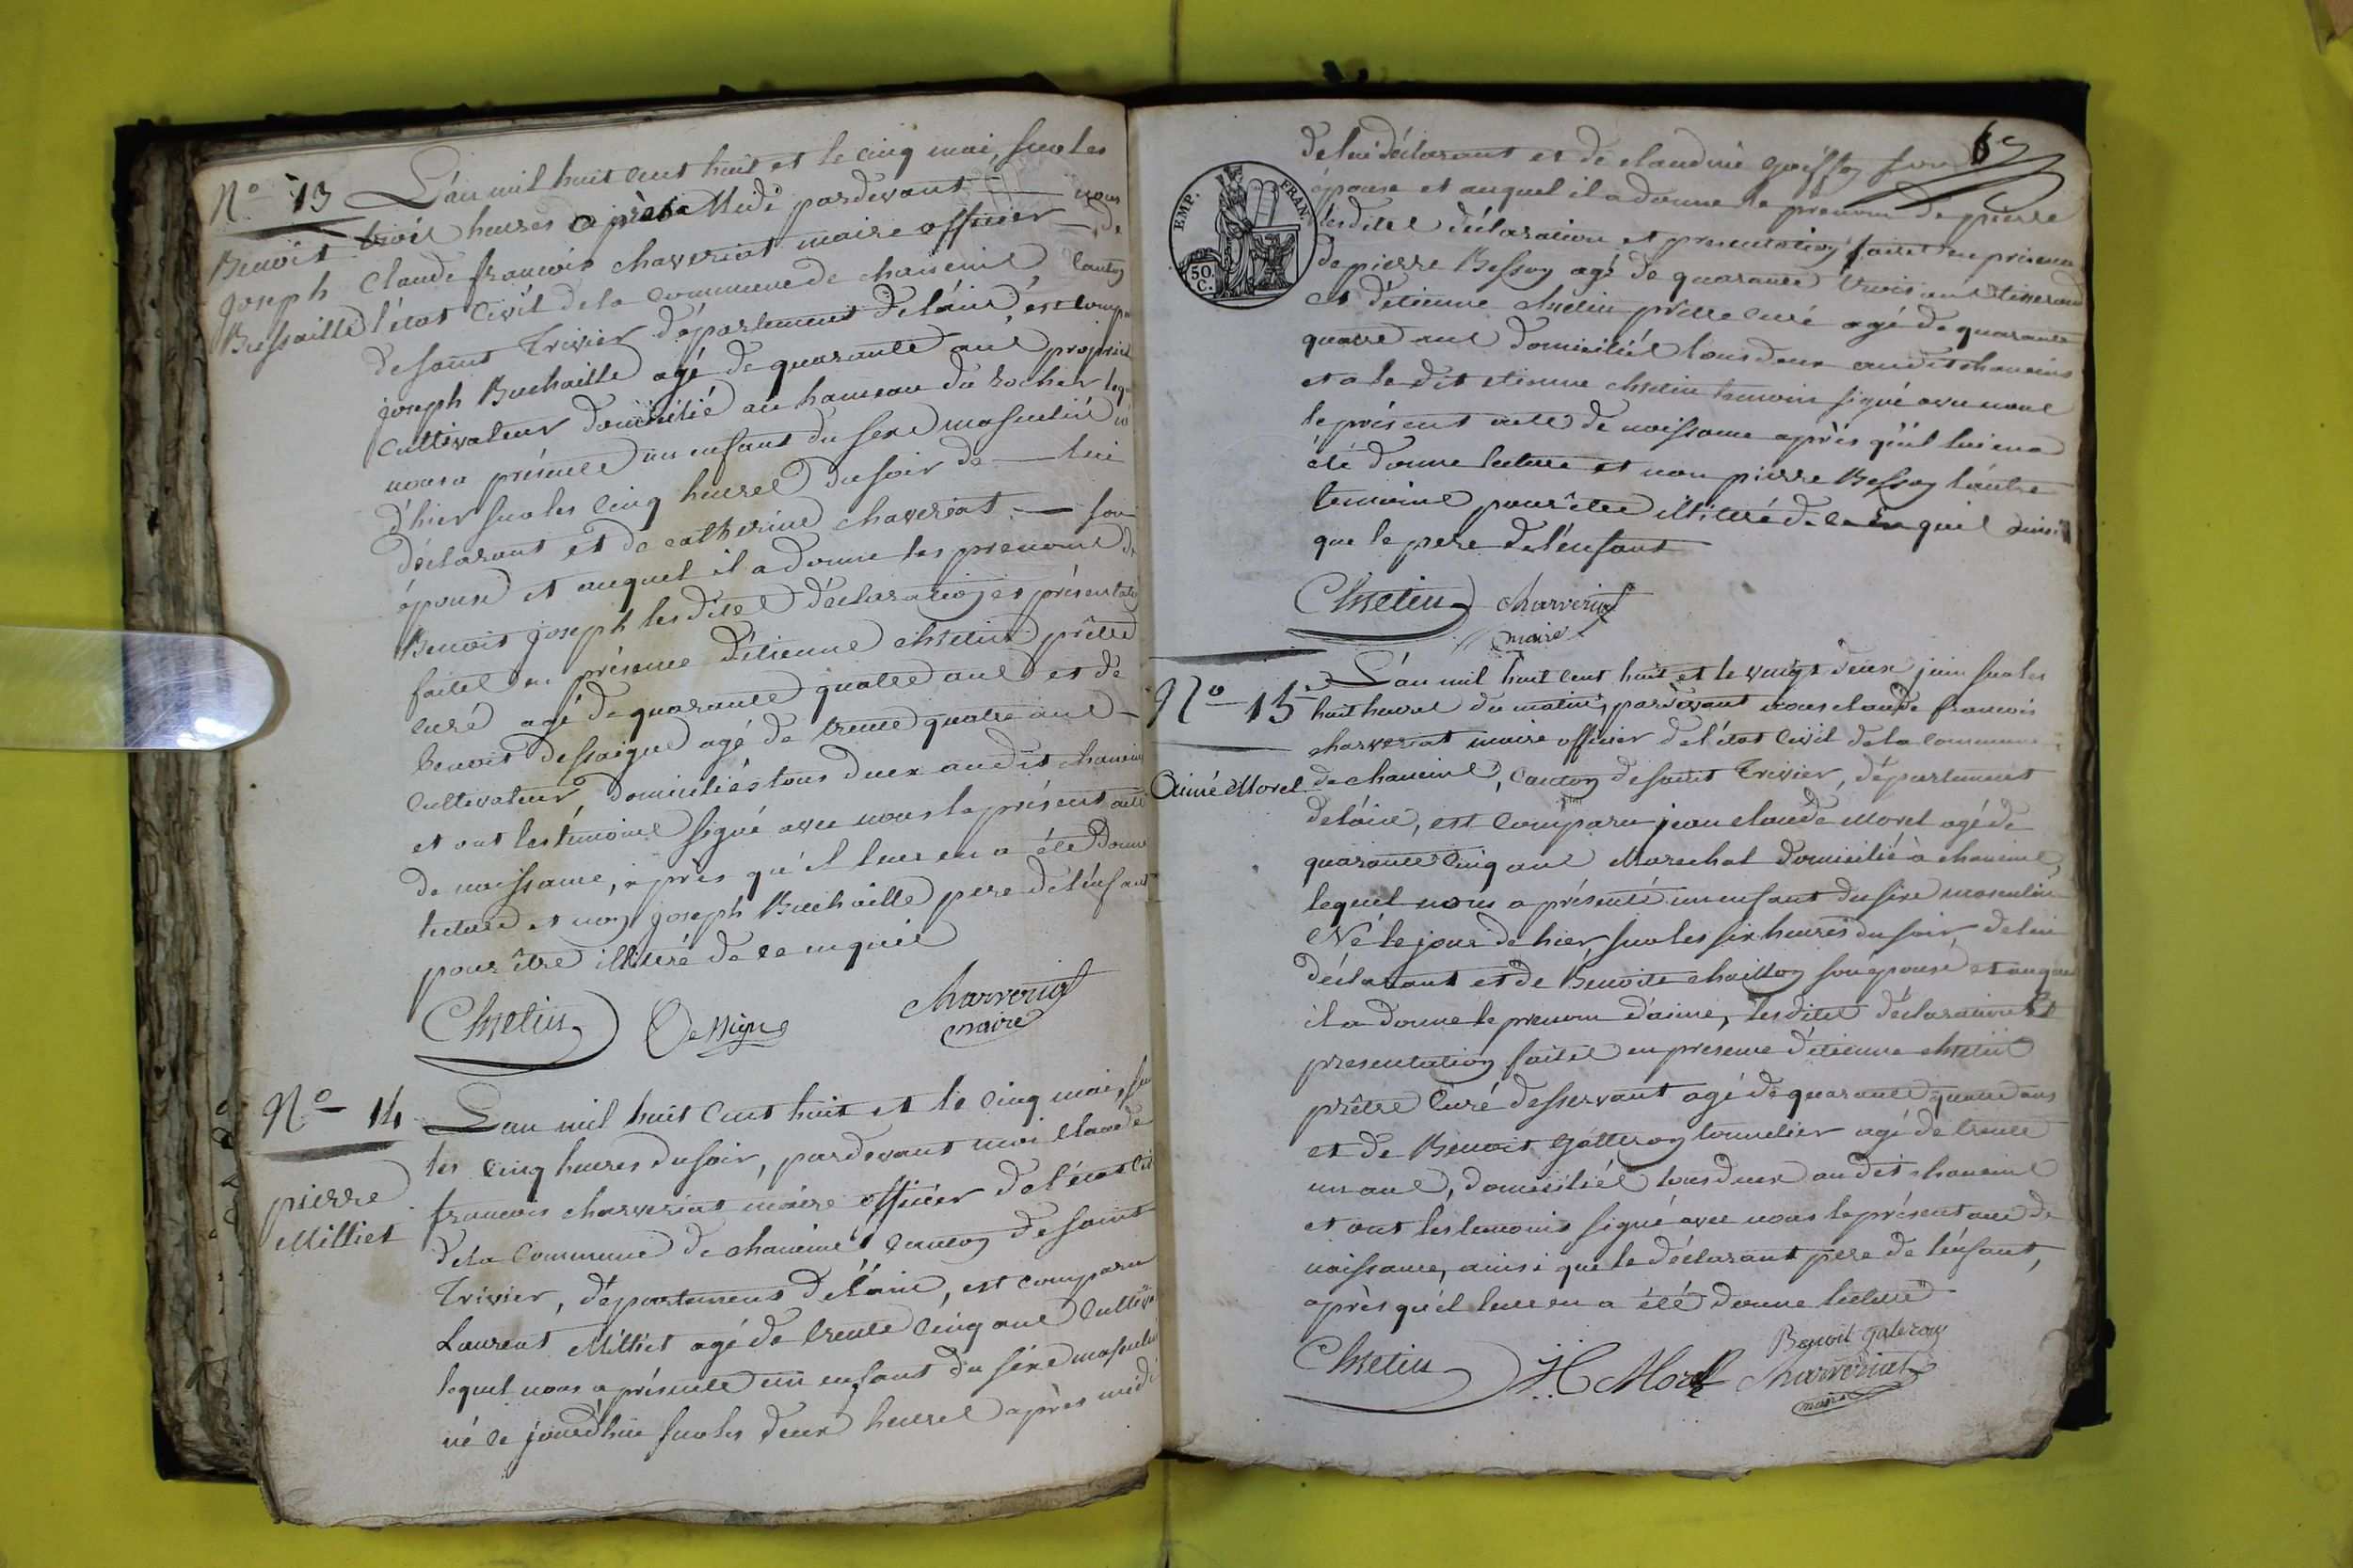 N° 13
Benoit
joseph
Buchaille
L'an mil huit cent huit et le cinq mai, sur les
trois heures après Midi pardevant — nous
Claude françois chaveriat maire officier — de
l'état Civil de la Commune de chaneins, canton
de saint Trivier département de l'ain, est comp
joseph Buchaille agé de quarante ans propriét
Cultivateur domicilié au hameau du rocher leq
nous a présenté un enfant du sexe masculin
d'hier sur les cinq heures du soir de — lui
déclarant et de catherine chaveriat — son
épouse et auquel il a donné les prenoms de
Benoit joseph lesdites déclaration et présentation
faites en présence d'étienne prêtre
curé agé de quarante quatre ans et de
benoit dessaigne agé de trente quatre ans —
Cultivateur, domiciliés tous deux audit chaneins
et ont les témoins signé avec nous le présent acte
de naissance, après qu'il leur en a été donné
lecture et non joseph Buchaille pere de l'enfant
pour être illitéré de ce enquis
charveriat
maire
N° 14
pierre
Milliet
L'an mil huit cent huit et le cinq mai, sur
les cinq heures du soir, pardevant moi Claude
françois charveriat maire officier de l'état civil
de la Commune de chaneins canton de saint
Trivier, département de l'ain, est comparu
Laurent Milliet agé de trente cinq ans cultiva
lequel nous a présenté un enfant du séxe masculin
né ce jourdhui sur les deux heures après midi
EMP. FRAN.
50.
C.
de lui déclarant et de claudine goiffon son
épouse et auquel il a donné le prenom de pierre
lesdites déclaration et presentation faites en présence
de pierre Besson agé de quarante trois ans tisserand
et d'étienne prêtre curé agé de quarante
quatre ans domiciliés tous deux audit chaneins
et a le dit étienne temoin signé avec nous
le présent acte de naissance après qu'il lui en a
été donné lecture et non pierre Besson l'autre
temoins pour être illitéré de ce enquis ainsi
que le pere de l'enfant
charveriat
maire
N° 15
Aimé Morel
L'an mil huit cent huit et le vingt deux juin sur les
huit heures du matin, pardevant nous claude francois
charveriat maire officier de l'état Civil de la commune
de chaneins, canton de saint Trivier, département
de l'ain, est comparu jean claude Morel agé de
quarante cinq ans Marechal domicilié à chaneins
lequel nous a présenté un enfant du sexe masculin
Né le jour de hier, sur les six heures du soir de lui
déclarant et de Benoite chaillon son épouse et auquel
il a donné le prenom d'aimé, lesdites déclaration et
presentation faites en presence d'étienne
prêtre Curé desservant agé de quarante quatre ans
et de Benoit gatteron tonnelier agé de trente
un ans, domiciliés tous deux audit chaneins
et ont les temoins signé avec nous le présent acte de
naissance, ainsi que le déclarant pere de l'enfant,
après qu'il leur en a été donné lecture
Benoit gateron
Morel charveriat
maire